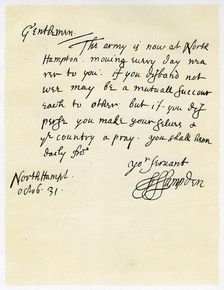 Gentlemen.
The army is now at North
Hampton. moving every day nea
rer to you. if you disband not
wee may be a mutuall succour
each to other. but if you dis
perse you make your selves &
yr country a pray. you shall hear
daily fro
yor servant
Hampden
NorthHampt.
octob. 31.